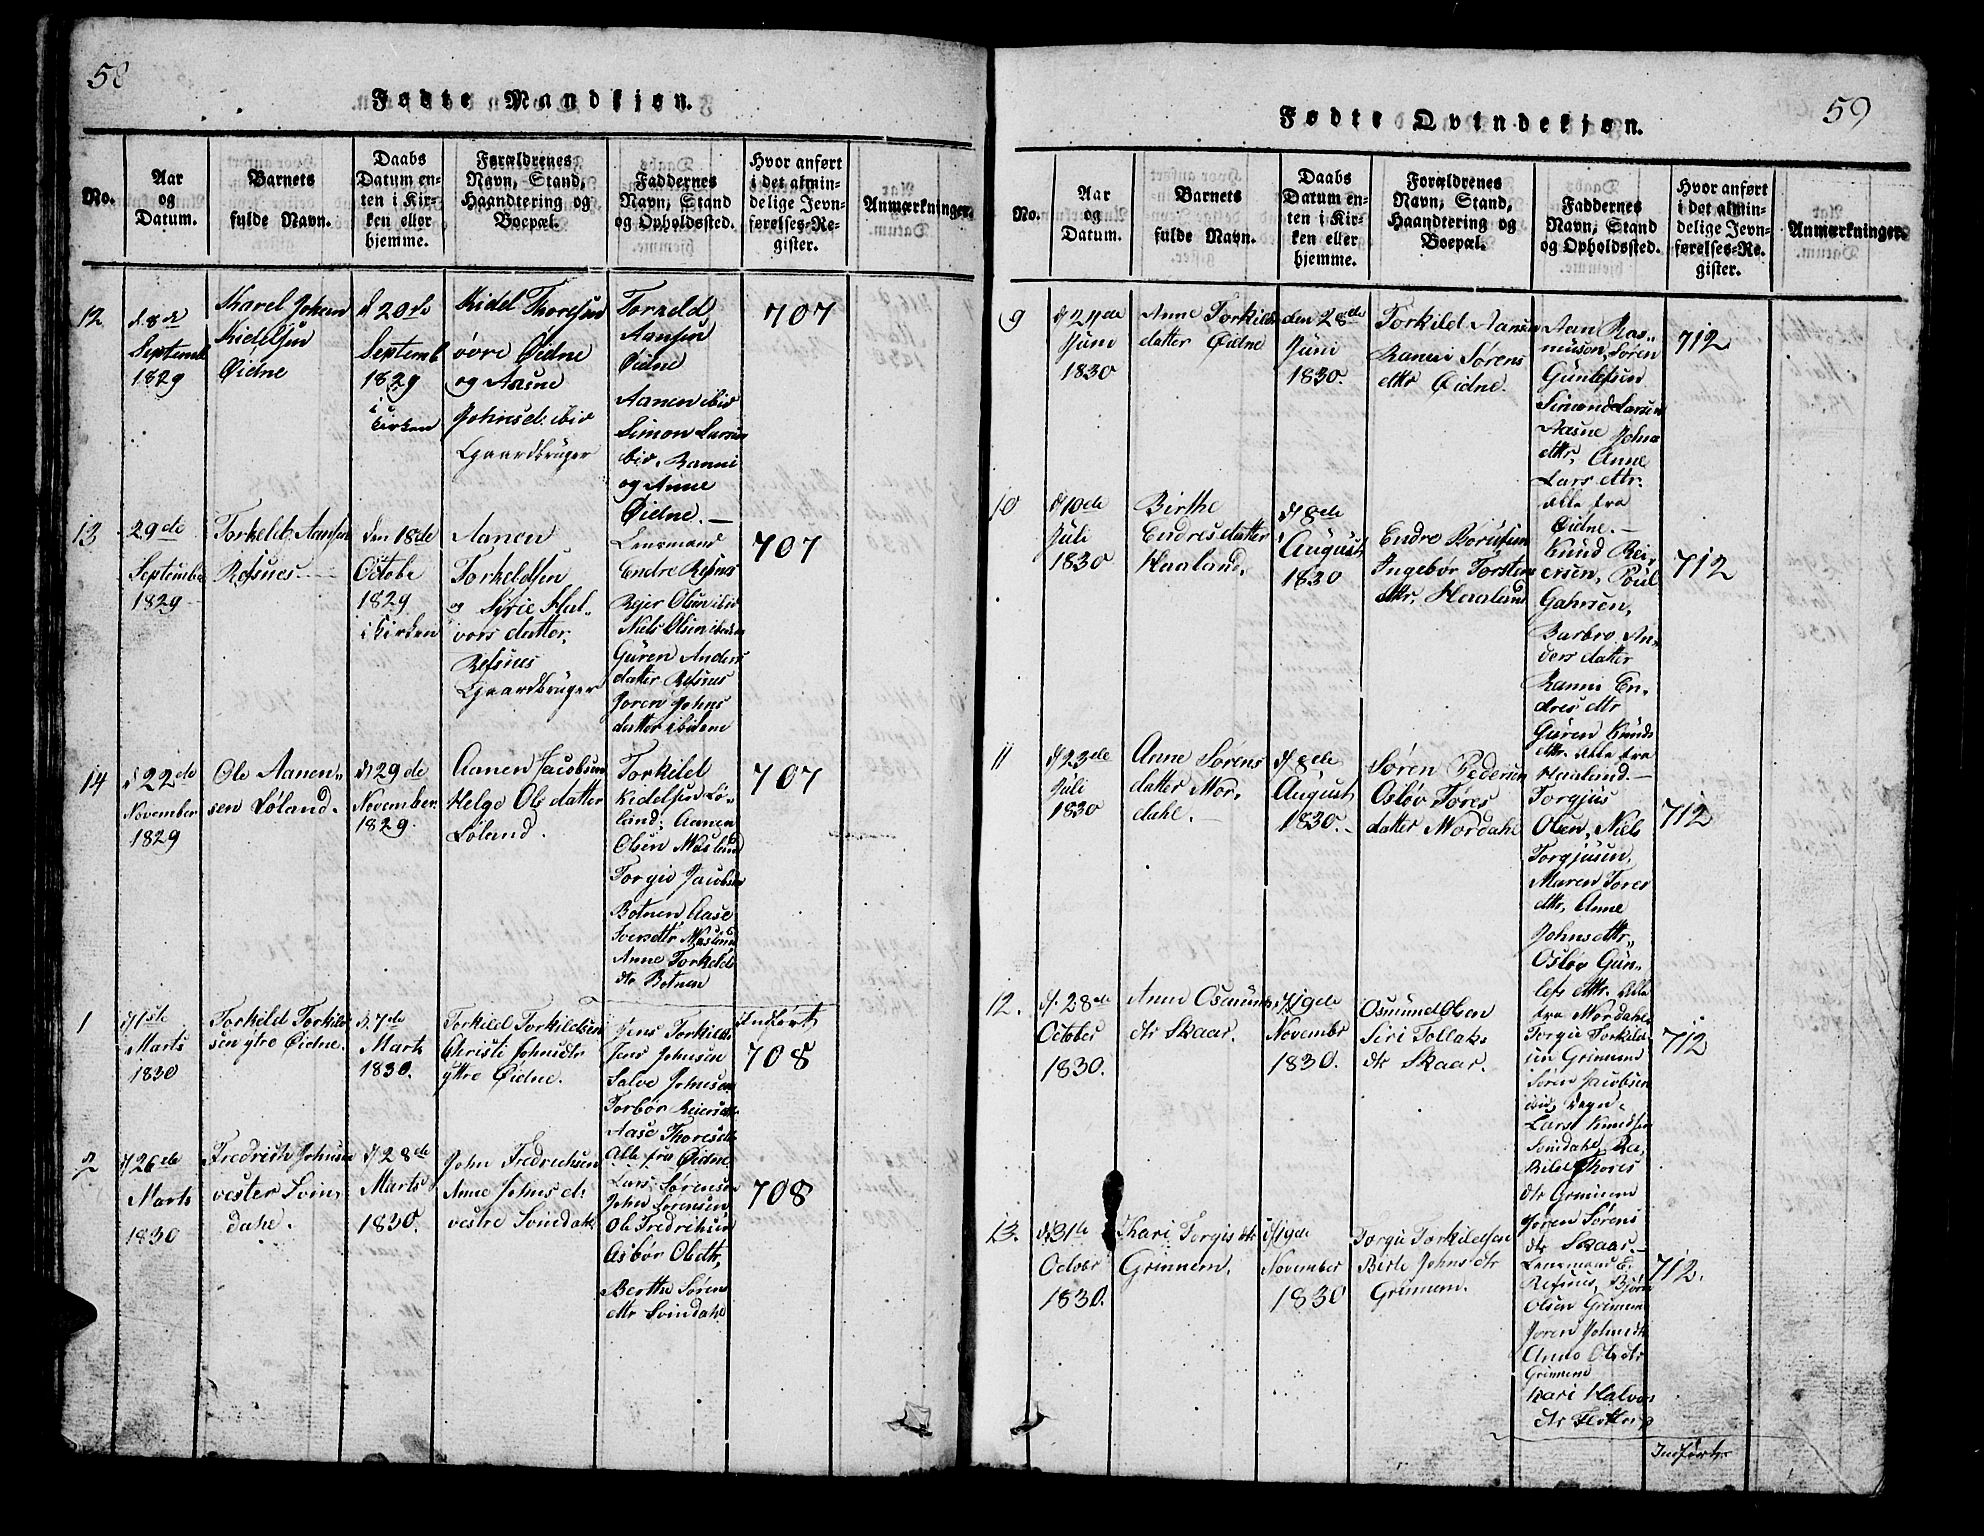 58
Fødte Mandkjøn.
No.
Aar
og
Datum.
Barnets
fulde Navn.
Daabs
Datum en-
ten i Kir-
ken eller
hjemme.
Forældrenes
Navn, Stand,
Haandtering og
Boepæl.
Faddernes
Navn, Stand
og Opholdssted.
Hvor anført
i det almin-
delige Jevn-
førelses-Re-
gister.
Anmærkninger.
12
d. 8de
Septemb
1829
Karel Johan
Kidelsen
Øidne
d 20de
Septemb
1829
i
Kirken
Kidel Thoresen
øvre Øidne
og Aasne
Johnsd. ibid
Gaardbruger
Torkeld
Aansen
Øidne
Aanen ibid
Simon Larsen
ibid. Ranni
og Anne
Øidne. —
707
13
29de
Septembr
1829
Torkeld Aansen
Refsnes
den 18de
Octobe
1829
i Kirken
Aanen
Torkeldsen
og Sirie Hal-
vors datter,
Refsnes
Gaardbruger
Lensmand
Endre Refsnes
Reier Olsen ibid
Niels Olsen ibidem
Guren Anders
datter Refsnes
Joren Johns
datter ibidem
707
14
d 22de
November
1829
Ole Aanen-
sen Løland.
d 29de
November
1829.
Aanen Jacobsen
Helge Ols datter
Løland.
Torkild
Kidelsen Lø-
land; Aanen
Olsen Møsland
Torgie Jacobsen
Botnen Aase
Iversdtr Møsland
Anne Torkelds
dtr Botnen
707
1
d 1ste
Marts
1830
Torkild Torkild-
sen ytre Øidne.
d. 7de
Marts
1830.
Torkild Torkildsen
Christi Johnsdtr
yttre Øidne.
Jens Torkilds
Jens Johnsen
Salve Johnsen
Torbør Reiersdtr
Aase Thoresdtr
Alle fra Øidne
Indført
708
2
d 26de
Marts
1830
Fredrich Johnsen
vester Svin-
dahl.
d 28de
Marts
1830.
John Fredrichsen
Anne Johns d.
vestre Svindahl
Lars Sørensen
John Sørensen
Ole Fredriksen
Asbør Olsdtr,
Berthe Sørens
dttr Svindahl
708
59
Fødte Qvindekjøn.
No.
Aar
og
Datum.
Barnets
fulde Navn.
Daabs
Datum en-
ten i Kir-
ken eller
hjemme.
Forældrenes
Navn, Stand,
Haandtering og
Boepæl.
Faddernes
Navn, Stand
og Opholdssted.
Hvor anført
i det almin-
delige Jevn-
førelses-Re-
gister.
Anmærkninger.
9
d 24de
Juni
1830
Anne Torkilds
datter Øidne
den 28de
Juni
1830.
Torkild Aansen
Ranni Sørens
dttr Øidne.
Aan Ras-
musen, Søren
Gunlefsen
Simond Larsen
Aasne Johns
dttr, Anne
Lars dttr.
alle fra
Øidne. —
712
10
d 10de
Juli
1830
Birthe
Endres datter
Haaland.
d 8de
August
1830
Endre Børüfsen
Ingebør Torstens
dttr, Haaland
Knud Rei-
ersen, Poul
Gahrsen,
Barbro An-
ders datter
Ranni En-
dres dttr
Guren Knuds
dttr. Alle fra
Haaland. —
712
11
d 23de
Juli
1830
Anne Sørens
datter Mor-
dahl. —
d 8de
August
1830. —
Søren Pedersen
Osløv Tores
datter Mordahl
Torgjus
Olsen, Niels
Torgjusen,
Maren Tores
dttr, Anne
Johnsdttr.
Osløv Gun-
lefs dttr. Alle
fra Mordahl
712
12.
d. 28de
October
1830.
Anne Osmunds
dtr Skaar.
d 19de
Novembr
1830.
Osmund Olsen
Siri Tollaks
dtr Skaar.
Torgie Torkild-
sen Grinnem
Søren Jacobsen
ibid,
Lars Knudsen
Svindahl,
Thores
dtr Grinnem
Joren Sørens
dtr Skaar. —
712
13.
d 31te
Octobr
1830.
Khari Torgis dtr
Grinnem.
d 19de
November
1830
Torgie Torkildsen
Berte Johns dtr
Grinnem.
Lensmand E.
Refsnes, Bjørn
Olsen Grinnem
Joren Johnsdtr
Anne Olsdtr
Grinnem
Kari Halvors
dtr
712.
Indført